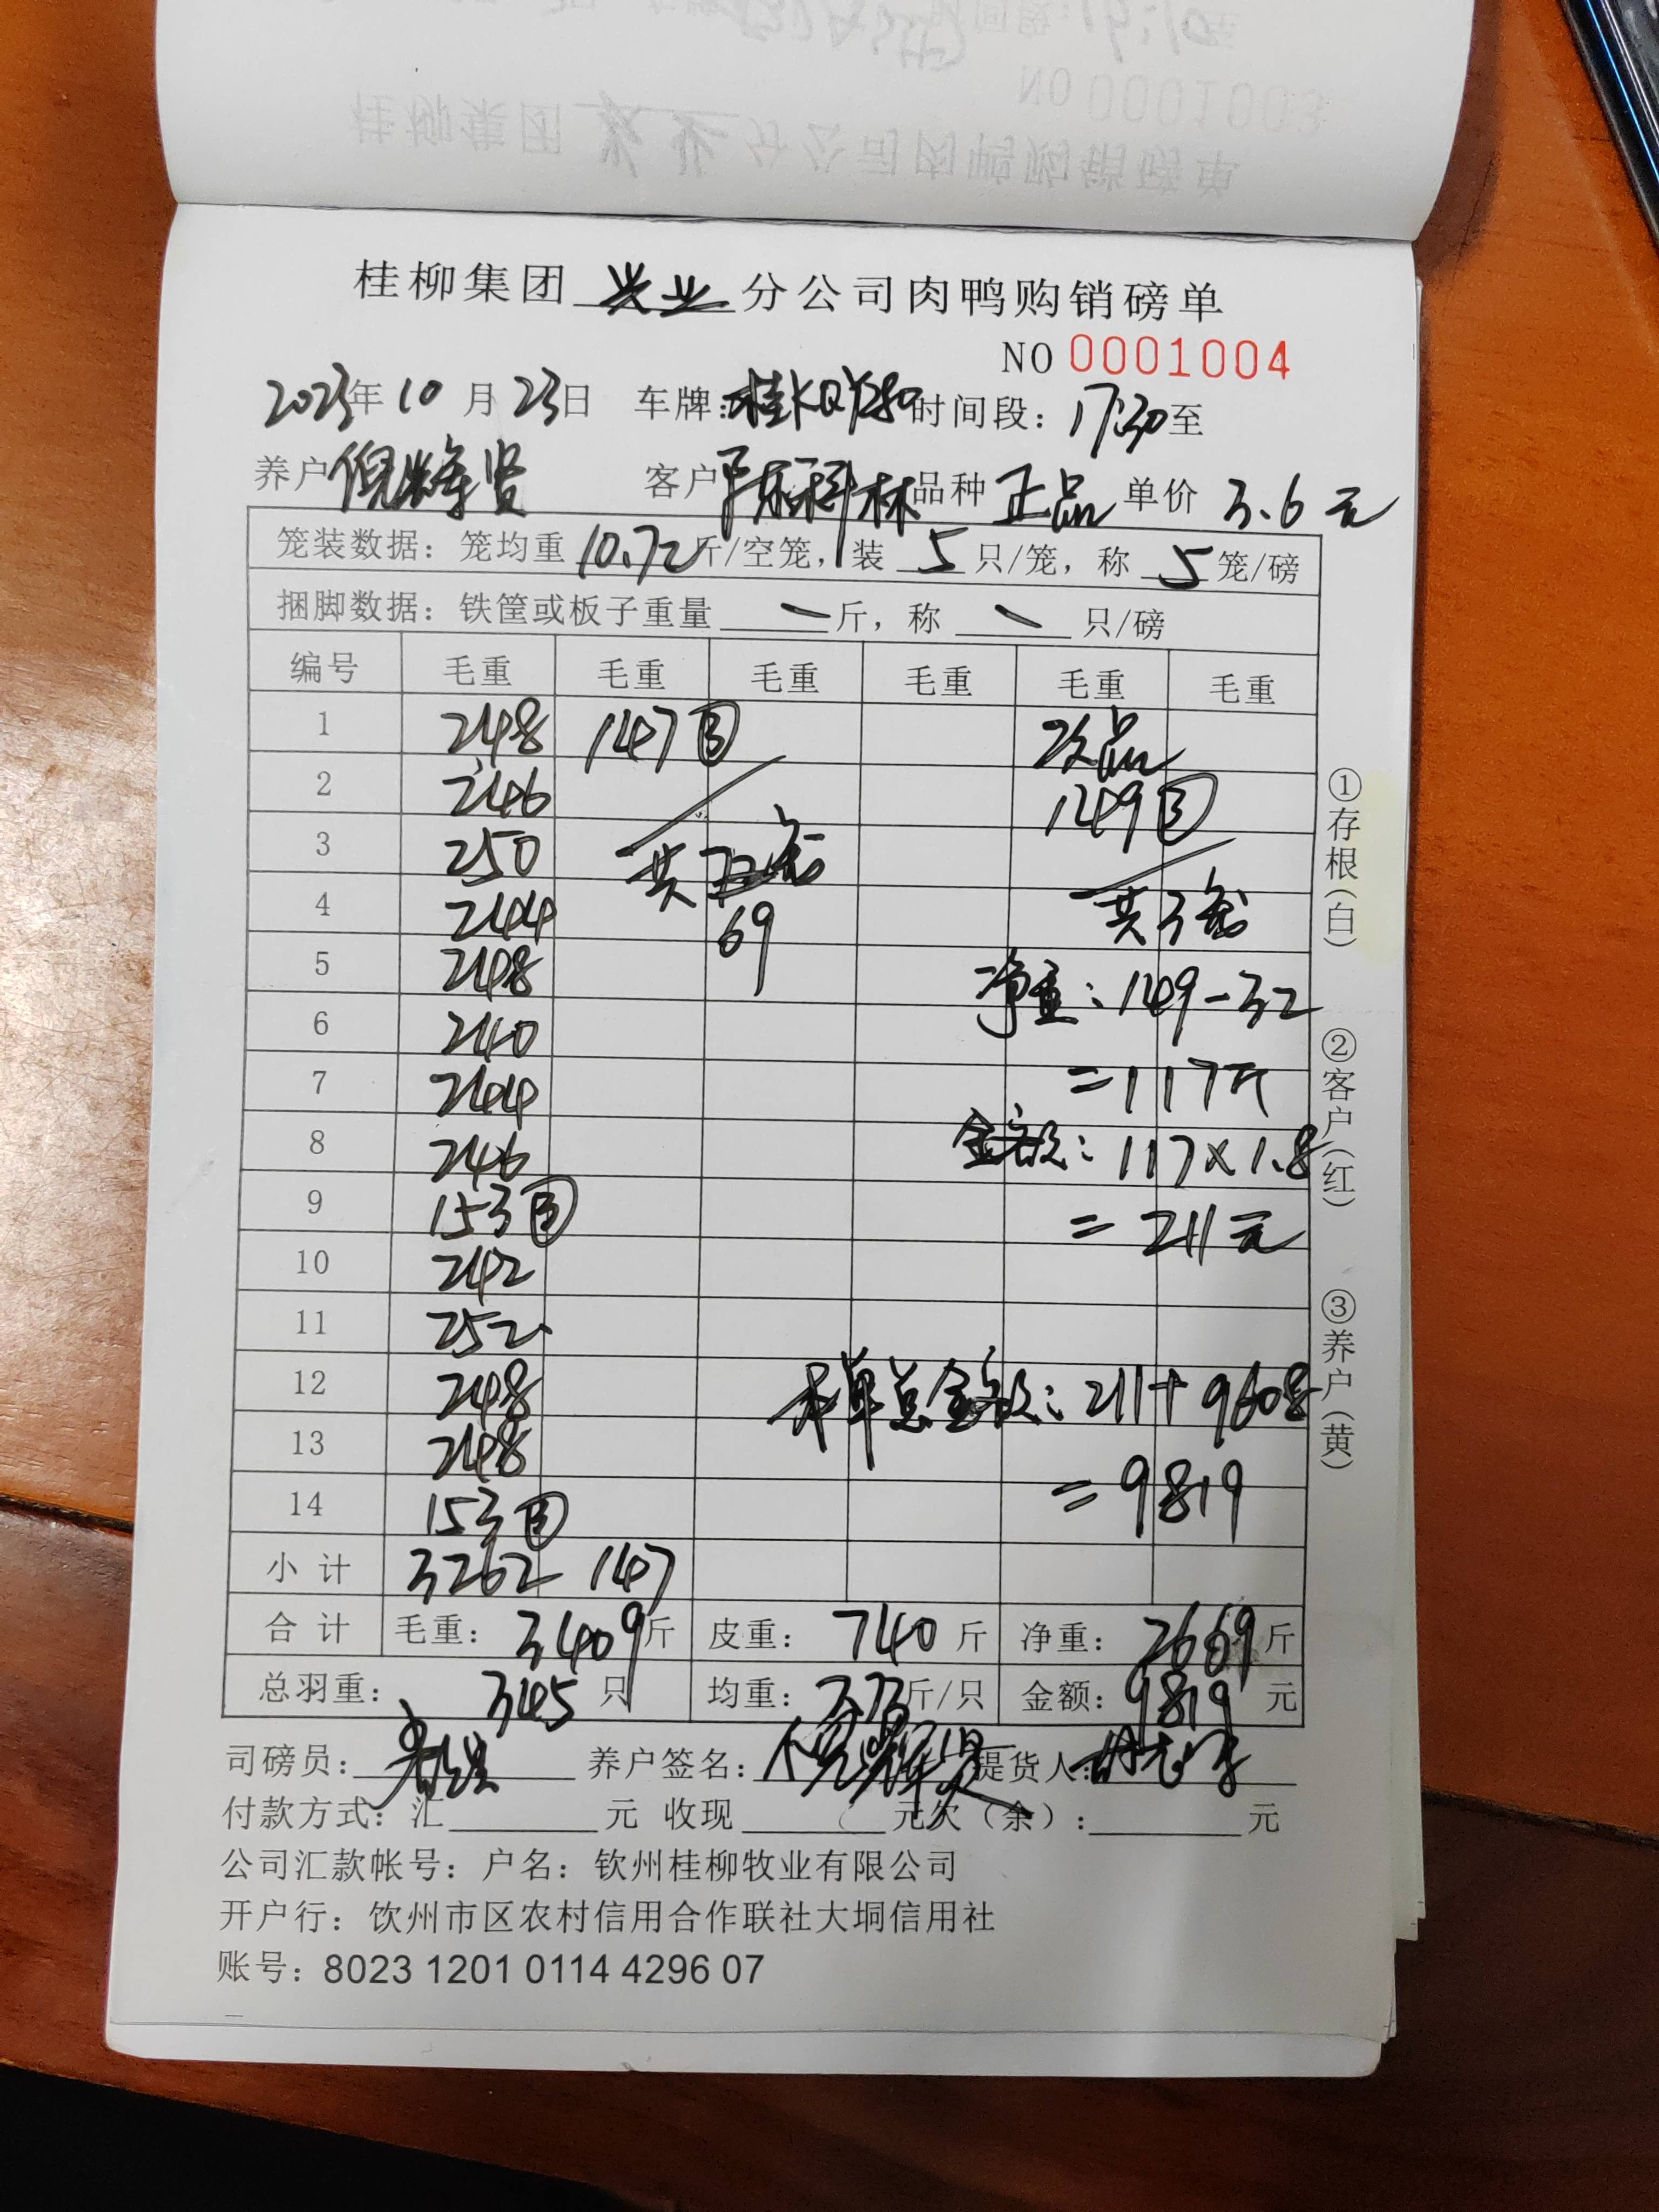 桂柳集团 兴业 分公司肉鸭购销磅单
NO 0001004
2023年 10 月 23日 车牌: 时间段: 17:30 至
养户 倪 贤 客户 陈科林 品种 正品 单价 3.6 元
笼装数据: 笼均重 10.72 斤/空笼, 装 5 只/笼, 称 5 笼/磅
捆脚数据: 铁筐或板子重量 一 斤, 称 一 只/磅
编号 毛重 毛重 毛重 毛重 毛重 毛重
1 248 147③ 次品
2 246 149③
3 250 共 笼
4 244 69 共3笼
5 248 净重: 149-32
6 240
7 244 =117斤
8 246 金额: 117×1.8
9 153③ =211元
10 242
11 252
12 248 本单总金额: 211+9608
13 248
14 153③ =9819
小计 3262 147
合计 毛重: 3409 斤 皮重: 740 斤 净重: 2669 斤
总羽重: 345 只 均重: 7.73 斤/只 金额: 9819 元
司磅员: 养户签名: 提货人:
付款方式: 汇 元 收现 元 欠(余): 元
公司汇款帐号: 户名: 钦州桂柳牧业有限公司
开户行: 饮州市区农村信用合作联社大垌信用社
账号: 8023 1201 0114 4296 07
①存根(白)
②客户(红)
③养户(黄)